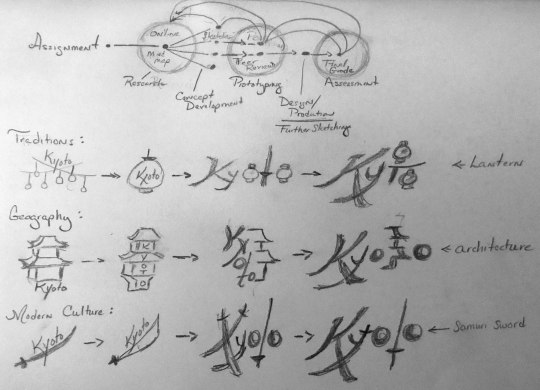 Assignment
Outline
Mind map
Research
Sketches
Concept Development
Peer Review
Prototyping
Design/
Production
Further Sketching
Final Grade
Assessment
Traditions:
Kyoto
Kyoto
Kyoto
Kyoto
← Lantern
Geography:
Kyoto
Kyoto
Kyoto
← architecture
Modern Culture:
Kyoto
Kyoto
Kyoto
Kyoto
← Samuri Sword